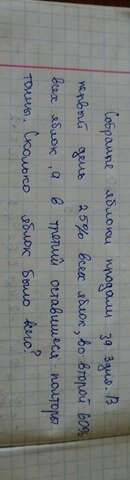 Собраные яблоки продали за 3 дня. В
первый день 25% всех яблок, во второй 60%
всех яблок, а в третий оставшиеся полторы
тонны. Сколько яблок было всего?